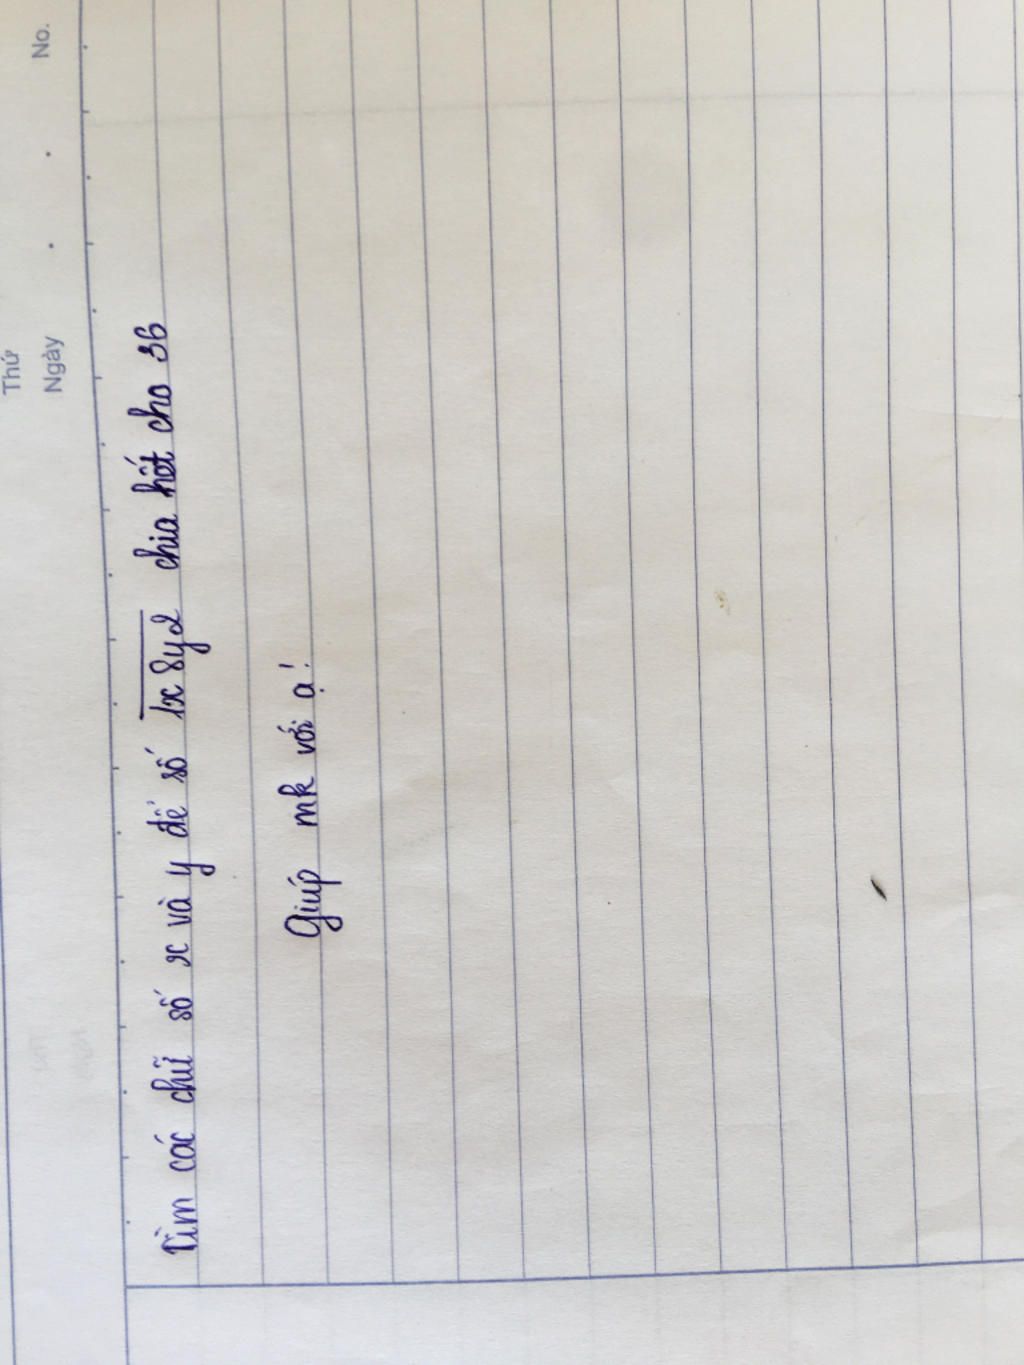 Thứ
Ngày
No.
Tìm các chữ số x và y để số 1x8y2 chia hết cho 36
Giúp mk với ạ!